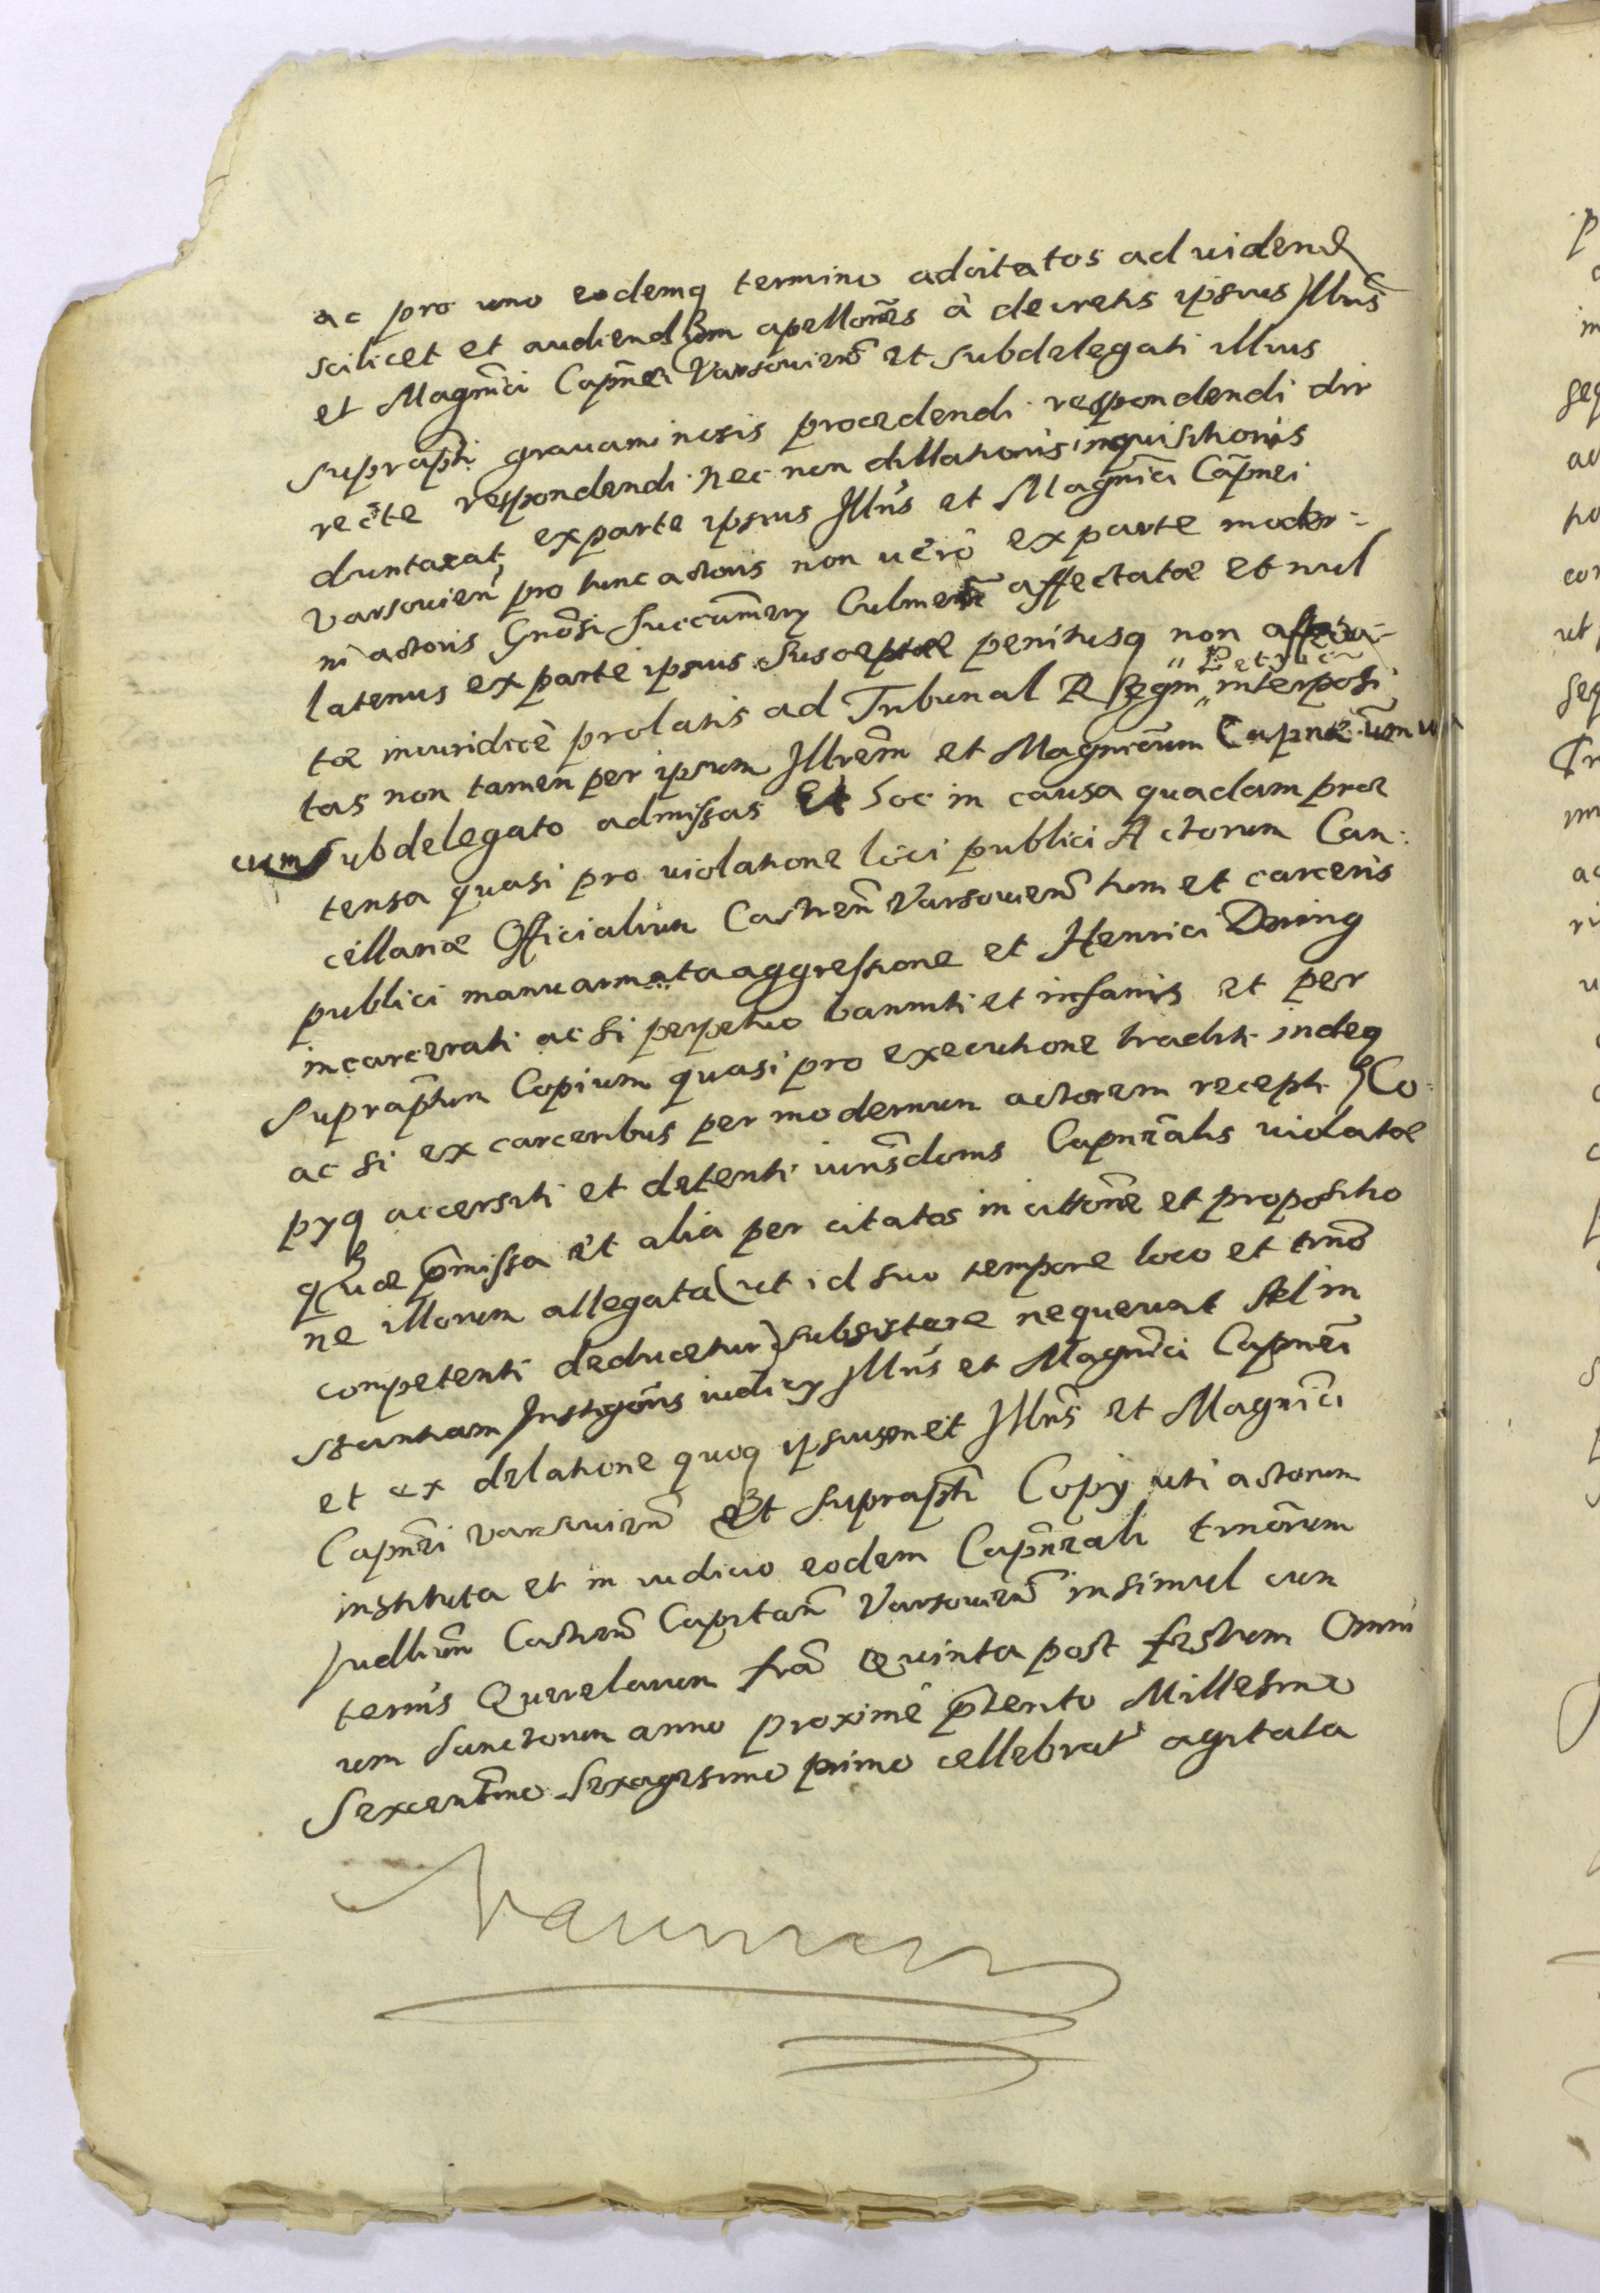 ac pro uno eodemq termino adcitatos ad uidend
scilicet et audiendum apellones à decretis ipsius Illris
et Magnci Capnei Varsouien et subdelegati illius
suprapti grauaminosis procedendi respondendi dir
recte respondendi nec non dillationis inquisitionis
duntaxat ex parte ipsius Illris et Magnci Capnei
Varsouien pro tunc actoris non uerò ex parte moder:
ni actoris Gnosi Succamery Culmen affectatae et nul
latenus ex parte ipsius susceptae penitusq non affecta-
tae iniuridicè prolatis ad Tribunal R Regni "Petricou" interposi
tas non tamen per ipsum Illrem et Magnicum Capneum
cum subdelegato admissas Et hoc in causa quadam prae
tensa quasi pro uiolatione loci publici Actorum Can:
cellariae Officialium Castren Varsouien tum et carceris
publici manu armata aggressione et Henrici Dning
incarcerati ac si perpetuo banniti et infamis et per
supraptum Copium quasi pro executione traditi indeq
ac si ex carceribus per modernum actorem recepti Co
pyq accersiti et detenti iurisdonis Capnealis uiolatae
quae pmissa et alia per citatos in cittone et propositio
ne illorum allegata (ut id suo tempore loco et tmno
competenti deducetur) subsistere nequeuat Ad in
stantiam Instigoris iudicy Illris et Magnci Capnei
et ex delatione quoq ipsiusmet Illris et Magnici
Capnei Varsouien Et suprapti Copij uti actorum
instituta et in iudicio eodem Capneali tmnorum
Judlium Castren Capitan Varsouien insimul cum
termis Querelarum fria Quinta post festum Omni
um Sanctorum anno proximè pterito Millesimo
Sexcentmo Sexagesimo primo cellebrat agitata